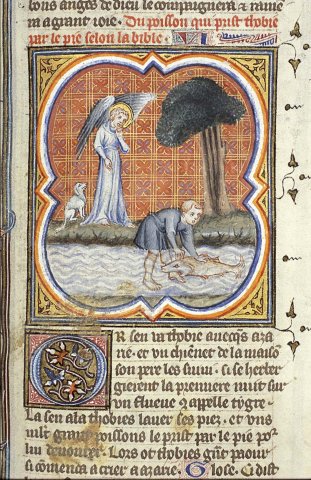 tons anges de dieu le compaignera et ramie
ra a grant ioie. Du poisson qui prist thobie
par le pie selon la bible.
Or sen va thobie auecqs aza
rie. et un chiennet de la maiso
son pere les suiui. si se herber
gierent la premiere nuit sur
un flueue q appelle tygre.
La sen ala thobies lauer ses piez. et uns
mlt grans poissons le prist par le pie por
lui deuourer. Lors ot thobies grant paour
si comenca a crier a azarie. Glose. Ce dist